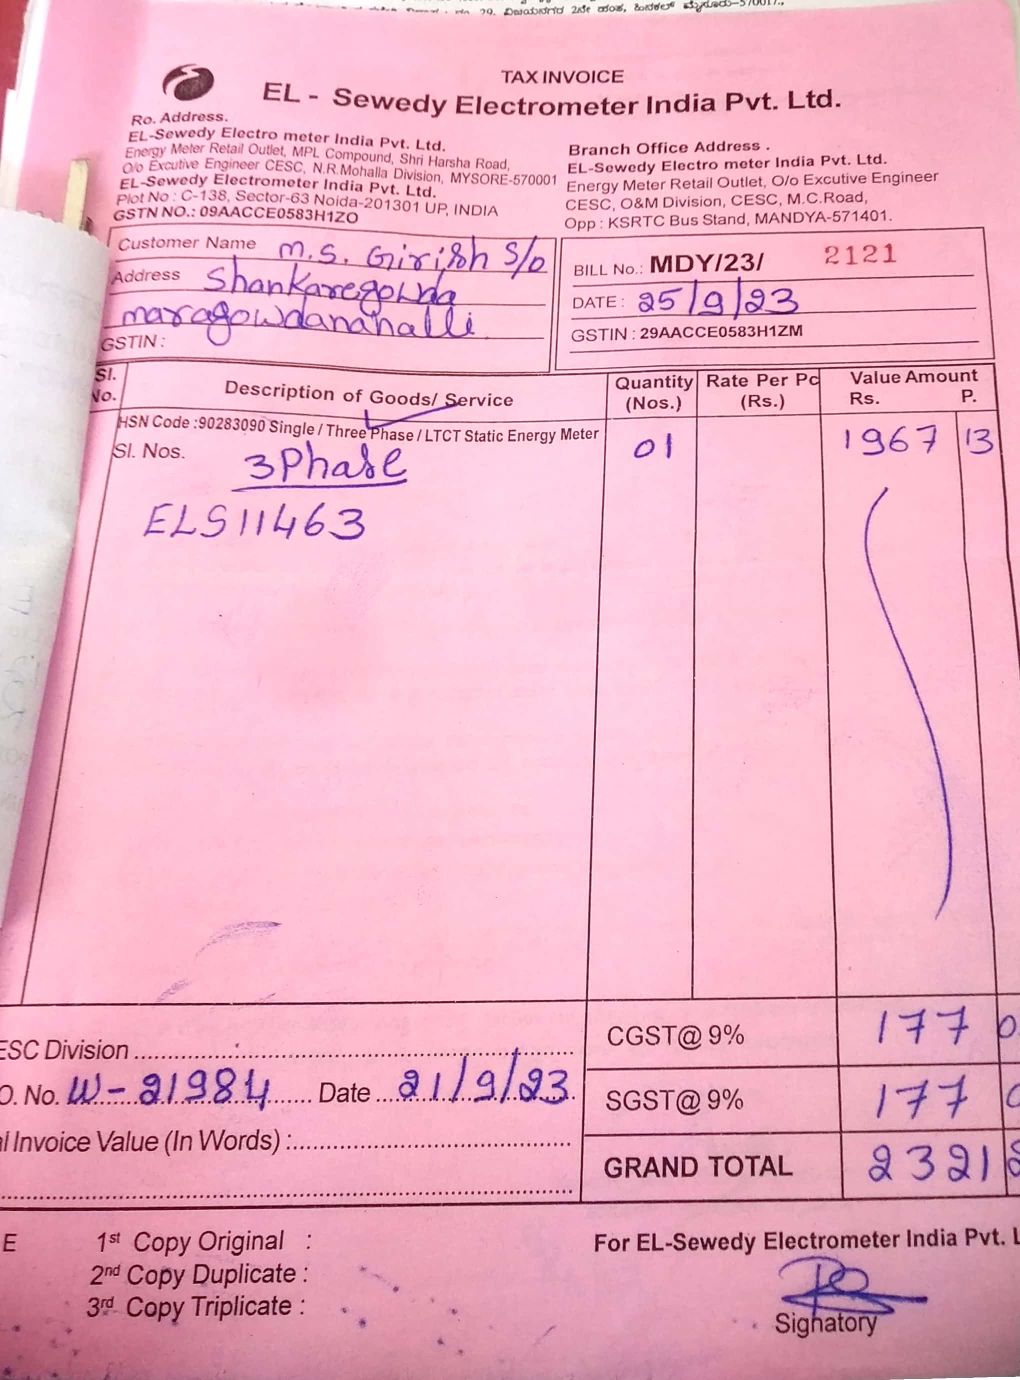 29, ವಿಜಯನಗರ 2ನೇ ಹಂತ, ಹಿನಕಲ್ ಮೈಸೂರು-570017.,
TAX INVOICE
EL - Sewedy Electrometer India Pvt. Ltd.
Ro. Address.
EL-Sewedy Electro meter India Pvt. Ltd.
Energy Meter Retail Outlet, MPL Compound, Shri Harsha Road,
O/o Excutive Engineer CESC, N.R.Mohalla Division, MYSORE-570001
EL-Sewedy Electrometer India Pvt. Ltd.
Plot No : C-138, Sector-63 Noida-201301 UP, INDIA
GSTN NO.: 09AACCE0583H1ZO
Branch Office Address .
EL-Sewedy Electro meter India Pvt. Ltd.
Energy Meter Retail Outlet, O/o Excutive Engineer
CESC, O&M Division, CESC, M.C.Road,
Opp : KSRTC Bus Stand, MANDYA-571401.
Customer Name M.S. Girish S/o
Address Shankaregowda
maragowdanahalli
GSTIN :
BILL No.: MDY/23/ 2121
DATE : 25/9/23
GSTIN : 29AACCE0583H1ZM
Sl. No. Description of Goods/ Service Quantity (Nos.) Rate Per Pc (Rs.) Value Amount Rs. P.
HSN Code :90283090 Single / Three Phase / LTCT Static Energy Meter 01 1967 13
Sl. Nos. 3Phase
ELS11463
CGST@ 9% 177 0
ESC Division
O. No. W-21984 Date 21/9/23
SGST@ 9% 177 0
al Invoice Value (In Words) :
GRAND TOTAL 2321
E 1st Copy Original :
2nd Copy Duplicate :
3rd Copy Triplicate :
For EL-Sewedy Electrometer India Pvt. L
Sighatory